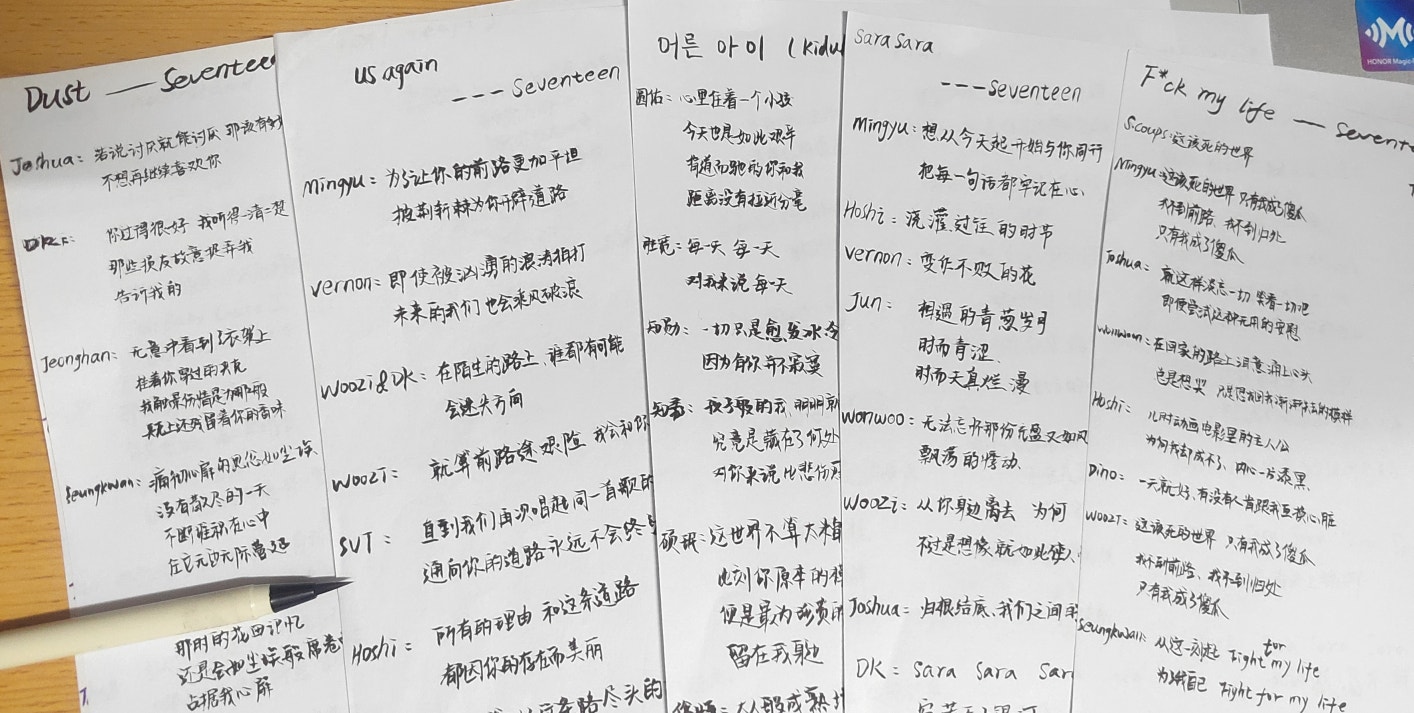 Dust — Seventee
Joshua: 若说讨厌就能讨厌 那该有多
不想再继续喜欢你
DK: 你过得很好 我听得一清二楚
那些损友故意捉弄我
告诉我的
Jeonghan: 无意中看到了衣架上
挂着你穿过的夹克
我触景伤情是为那般
夹克上还残留着你的香味
Seungkwan: 痛彻心扉的思念如尘埃
没有散尽的一天
不断堆积在心中
在它无边无际蔓延
那时的花回记忆
还是会如尘埃般席卷
占据我心扉
us again
--- Seventeen
mingyu: 为了让你的前路更加平坦
披荆斩棘为你开辟道路
vernon: 即使被汹涌的浪涛拍打
未来的我们也会乘风破浪
woozi&DK: 在陌生的路上、谁都有可能
会迷失方向
WOOZI: 就算前路途艰险 我会和你
SVT: 直到我们再次唱起同一首歌的
通向你的道路永远不会终
Hoshi: 所有的理由 和这条道路
都因你的存在而美丽
路尽头的
어른 아이 (kidul
圆佑: 心里住着一个小孩
今天也是如此艰辛
背道而驰的你和我
距离没有拉近分毫
胜宽: 每一天 每一天
对我来说 每一天
知勋: 一切只是愈发冰冷
因为有你 并不寂寞
知秀: 孩子般的我, 明明就
究竟是藏在了何处
对你来说 比悲伤更
硕珉: 这世界不算太糟
此刻你原本的模
便是最为珍贵的
留在我身边
大人般成熟
Sara Sara
---Seventeen
mingyu: 想从今天起 开始与你同行
把每一句话都牢记在心
Hoshi: 浇灌过往的时节
vernon: 变作不败的花
Jun: 相遇的青葱岁月
时而青涩、
时而天真烂漫
wonwoo: 无法忘怀那份充盈又如风
飘荡的悸动
WOOZi: 从你身边离去 为何
不过是想像就如此使人
Joshua: 归根结底、我们之间
DK: sara sara sar
F*ck my life — sevent
S.coups: 这该死的世界
Mingyu: 这该死的世界 只有我成了傻瓜
找不到前路、找不到归处
只有我成了傻瓜
Joshua: 就这样淡忘一切 笑看一切吧
即便尝试这种无用的安慰
wonwoo: 在回家的路上 酒意涌上心头
总是想哭 只是想起我渐渐失去的模样
Hoshi: 儿时动画电影里的主人公
为何我却成不了、内心一片漆黑
Dino: 一天就好、有没有人肯跟我互换心脏
WOOZI: 这该死的世界 只有我成了傻瓜
找不到前路、找不到归处
只有我成了傻瓜
Seungkwan: 从这一刻起 Fight for my life
为我自己 Fight for my life
HONOR Magic